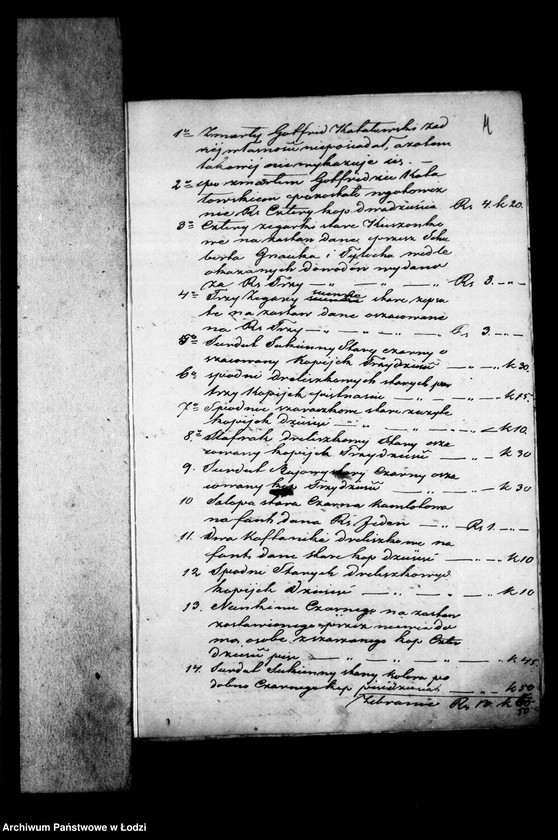 4
1o Zmarły Gotfried Kalatowski żad
nej własności nieposiadał, a zatem
takowej nie wykazuje się. —
2o po zmarłem Gotfriedzie Kala
towskiem pozostało w gotowiz
nie Rs Cztery kop. dwadzieścia Rs 4 k 20.
3o Cztery zegarki stare Kieszonko
we na zastaw dane przez Schu
berta Gnauka i Tylocha wedle
okazanych dowodów wydano
za Rs Trzy — „ — „ — „ — Rs 3. — „ —
4o Trzy Zegary stare zepsu
te na zastaw dane oszacowane
na Rs Trzy — „ — „ — „ — Rs 3 — „ —
5o Surdut Sukienny Stary czarny o
szacowany kopiejk Trzydzieści — „ — k 30.
6o spodni dreliszkowych starych par
trzy kopiejk piętnaście — „ — „ — k 15.
7o Spodnie szaraczkowe stare zużyte
kopiejk dziesięć — „ — „ — k 10.
8o Szlafrok dreliszkowy Stary osza
cowany kopiejk Trzydzieści — „ — k 30
9. Surdut stary Czarny osza
cowany kop Trzydzieści — „ — k 30
10 Salopa stara Czarna Kamlotowa
na fant dana Rs Jeden — „ — Rs 1. — „ —
11. Dwa Kaftaniki dreliszkowe na
fant dane stare kop dziesięć — „ — k 10
12. Spodni Starych dreliszkowych
kopiejk Dziesięć — „ — „ — k 10
13. Nankinu Czarnego na zastaw
zostawionego przez niewiado
mą osobę kop Czter
dzieści pięć — „ — „ — „ — k 45.
14. Surdut Sukienny stary koloru po
dobno Czarnego kop pięćdziesiąt — „ — k 50
Zebranie Rs k
50
Archiwum Państwowe w Łodzi